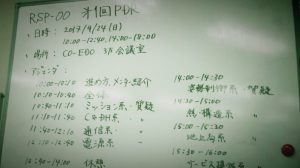 RSP-00 第1回PDR
・日時: 2017/9/24(日)
10:00-12:40, 14:00-18:00
・場所: CO-EDO 3F会議室
10:00-10:10 進め方、メンター紹介
10:10-10:40 全体
10:40-11:10 ミッション系・質疑
11:10-11:40 C&DH系 〃
11:40-12:10 通信系 〃
12:10-12:40 電源系 〃
12:40-14:00 休憩
14:00-14:30
14:30-15:00
熱・構造系 〃
15:00-15:30
地上局系 〃
15:30-16:00